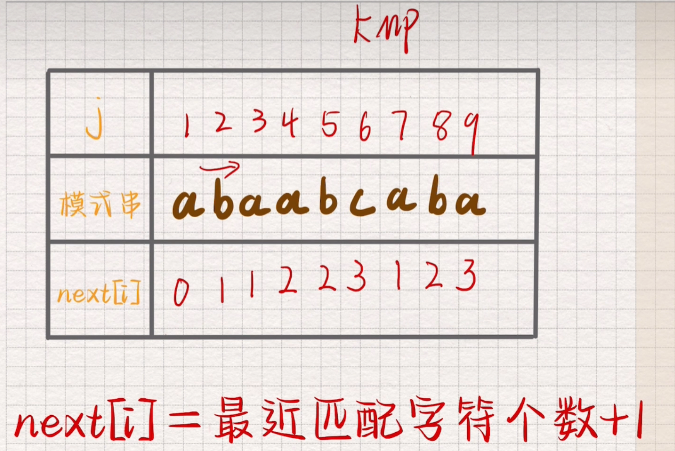 kmp
j 1 2 3 4 5 6 7 8 9
模式串 a b a a b c a b a
next[i] 0 1 1 2 2 3 1 2 3
next[i]=最近匹配字符个数+1